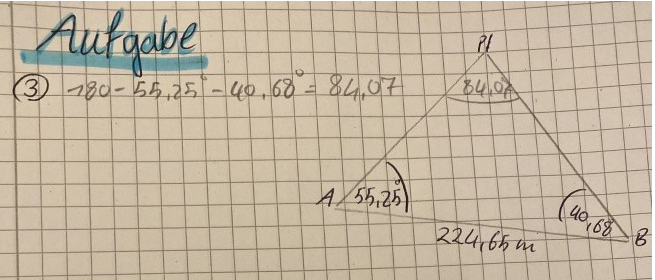 Aufgabe
③ 180 - 55,25° - 40,68° = 84,07
P1
84,07
A
55,25°
40,68
B
224,65 m